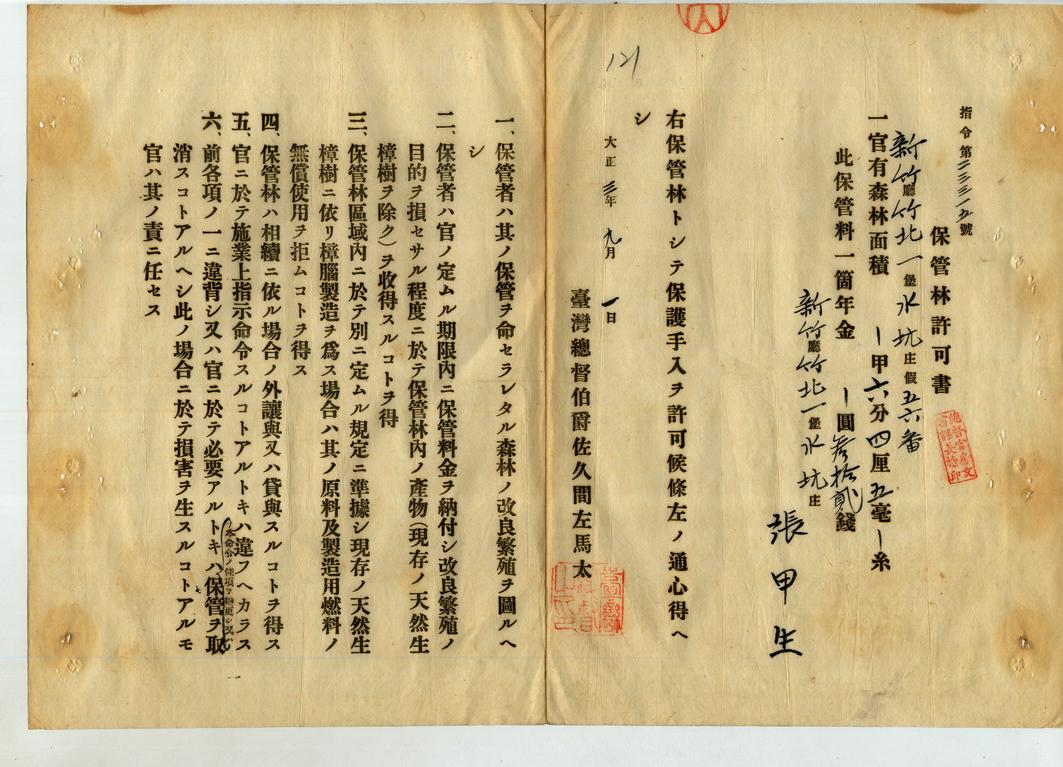 指令第三三三一五號
保管林許可書
新竹廳竹北一堡水坑庄假五六番
一官有森林面積 一甲六分四厘五毫一糸
此保管料一箇年金 一圓參拾貳錢
新竹廳竹北一堡水坑庄
張甲生
右保管林トシテ保護手入ヲ許可候條左ノ通心得ヘ
シ
大正三年九月一日
臺灣總督伯爵佐久間左馬太
121
一、保管者ハ其ノ保管ヲ命セラレタル森林ノ改良繁殖ヲ圖ルヘ
シ
二、保管者ハ官ノ定ムル期限內ニ保管料金ヲ納付シ改良繁殖ノ
目的ヲ損セサル程度ニ於テ保管林內ノ產物(現存ノ天然生
樟樹ヲ除ク)ヲ收得スルコトヲ得
三、保管林區域內ニ於テ別ニ定ムル規定ニ準據シ現存ノ天然生
樟樹ニ依リ樟腦製造ヲ爲ス場合ハ其ノ原料及製造用燃料ノ
無償使用ヲ拒ムコトヲ得ス
四、保管林ハ相續ニ依ル場合ノ外讓與又ハ貸與スルコトヲ得ス
五、官ニ於テ施業上指示命令スルコトアルトキハ違フヘカラス
本命令ノ條項ヲ變更シ又ハ
六、前各項ノ一ニ違背シ又ハ官ニ於テ必要アルトキハ保管ヲ取
消スコトアルヘシ此ノ場合ニ於テ損害ヲ生スルコトアルモ
官ハ其ノ責ニ任セス